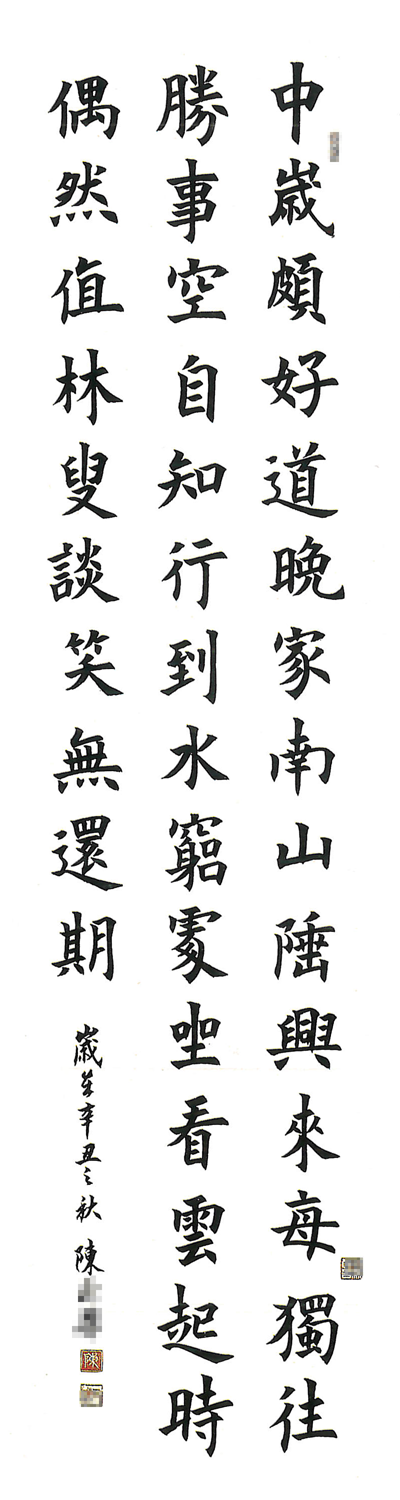 中歲頗好道晚家南山陲興來每獨往
勝事空自知行到水窮處坐看雲起時
偶然值林叟談笑無還期
歲在辛丑之秋 陳
陳